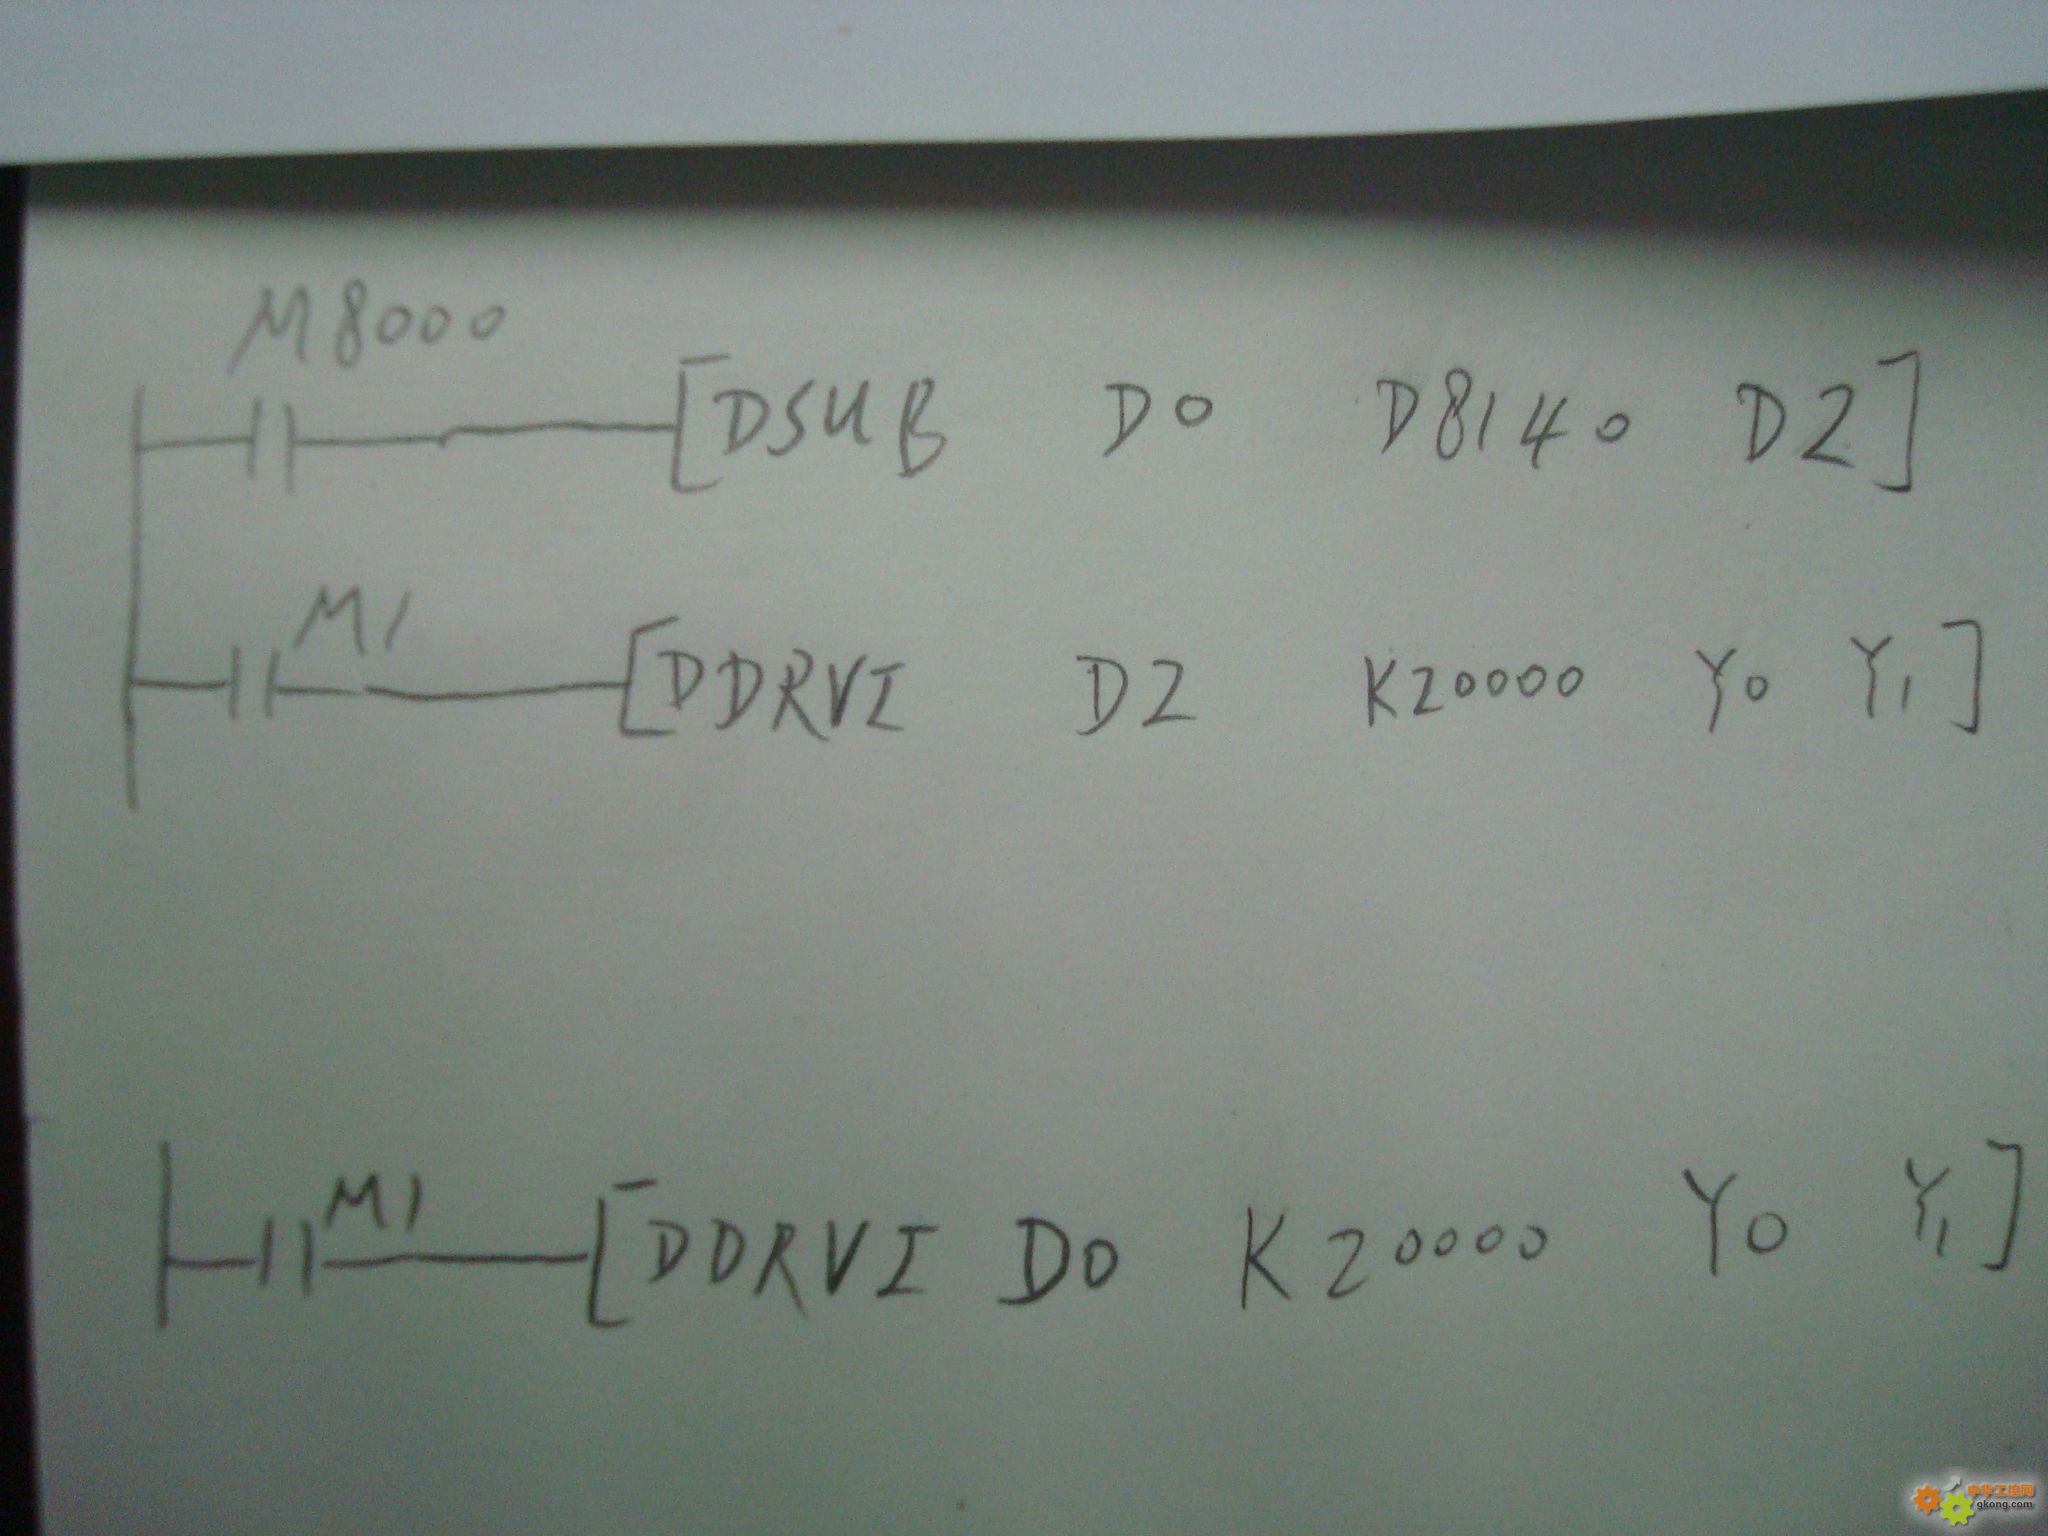 M8000
[DSUB D0 D8140 D2]
M1
[DDRVI D2 K20000 Y0 Y1]
M1
[DDRVI D0 K20000 Y0 Y1]
中华工控网
gkong.com